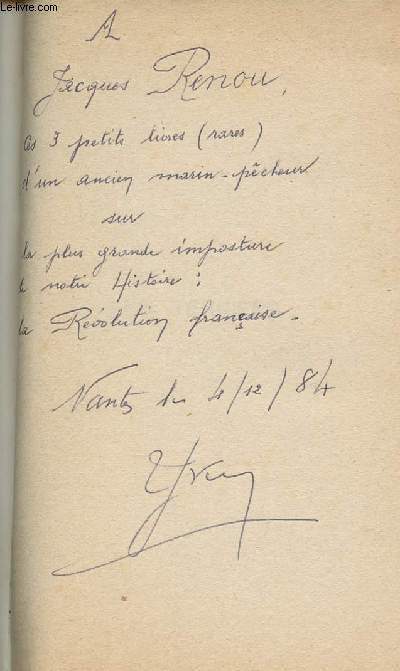 © Le-livre.com
A
Jacques Renou,
ces 3 petits livres (rares)
d'un ancien marin-pêcheur
sur
la plus grande imposture
de notre Histoire :
la Révolution française.
Nantes le 4/12/84